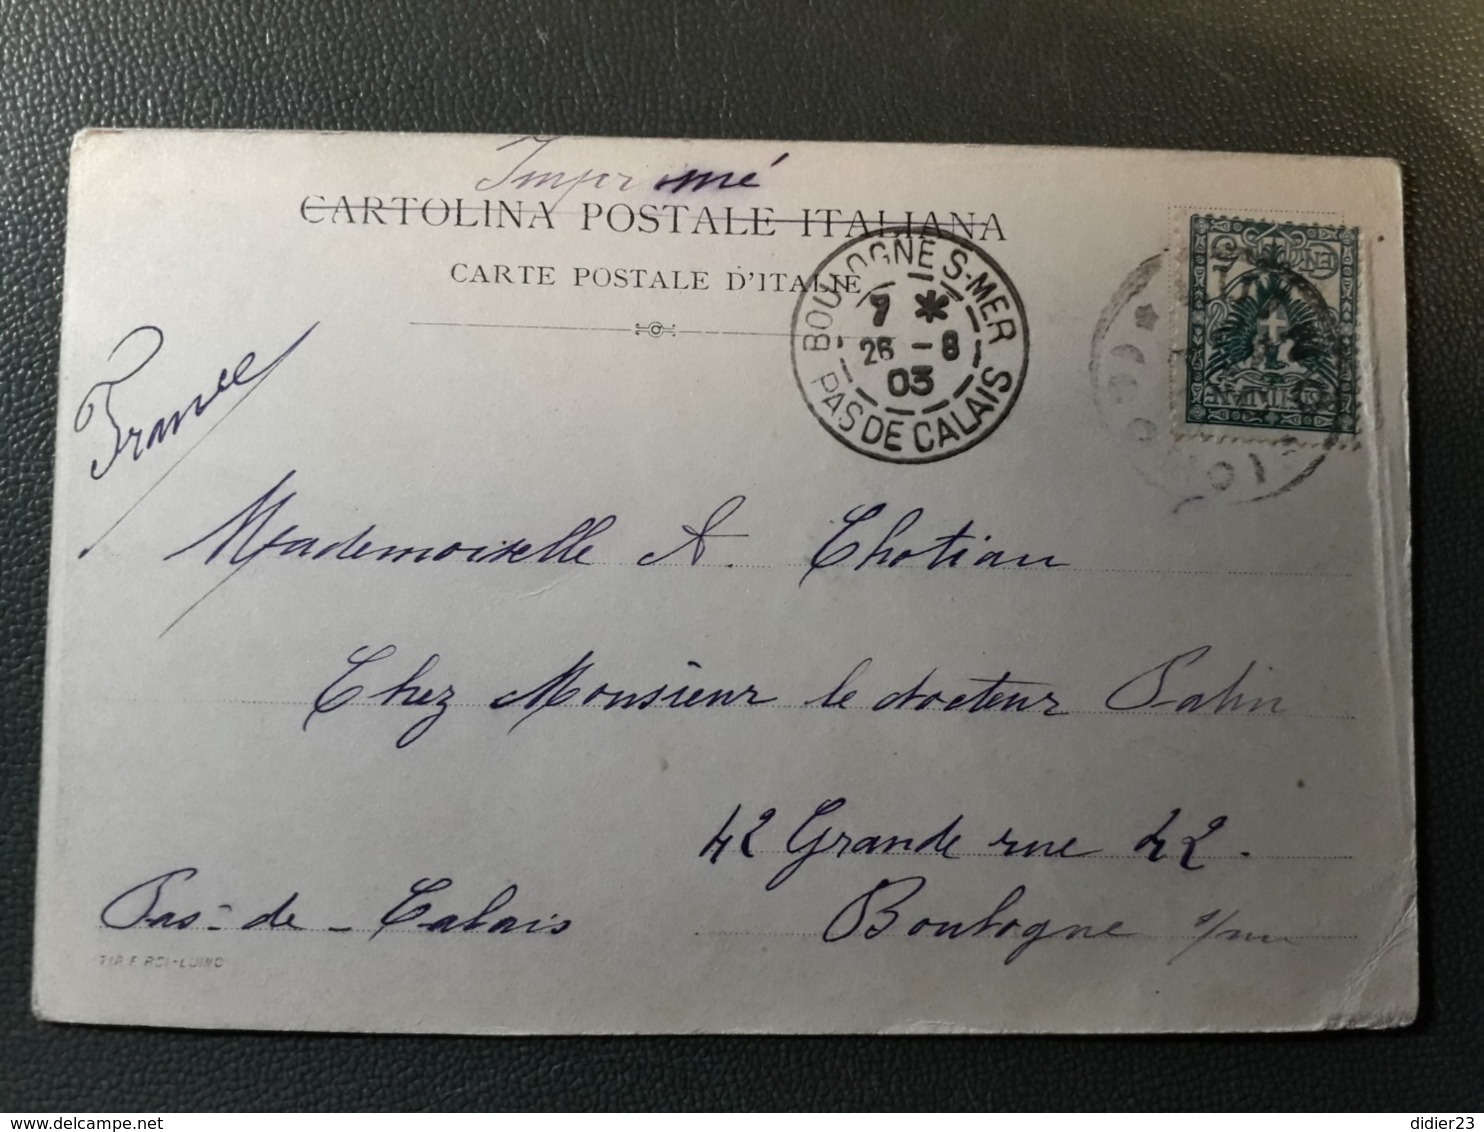 Imprimé
CARTOLINA POSTALE ITALIANA
CARTE POSTALE D'ITALIE
BOULOGNE S-MER
7 *
26 - 8
03
PAS DE CALAIS
France
Mademoiselle A. Thotian
Chez Monsieur le docteur Patin
42 Grande rue 42.
Pas-de-Calais
Boulogne s/mer
TIP. F. ROI-LUINO
didier23